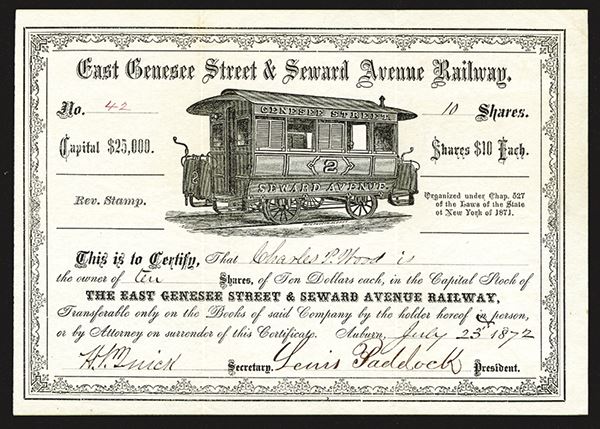 East Genesee Street & Seward Avenue Railway.
No. 42
10 Shares.
Capital $25,000.
Shares $10 Each.
GENESEE STREET
2
SEWARD AVENUE
Rev. Stamp.
Organized under Chap. 527
of the Laws of the State
of New York of 1871.
This is to Certify, That Charles P. Wood is
the owner of ten Shares, of Ten Dollars each, in the Capital Stock of
THE EAST GENESEE STREET & SEWARD AVENUE RAILWAY,
Transferable only on the Books of said Company by the holder hereof in person,
or by Attorney on surrender of this Certificate. Auburn, July 23 1872
Secretary. Lewis Paddock President.